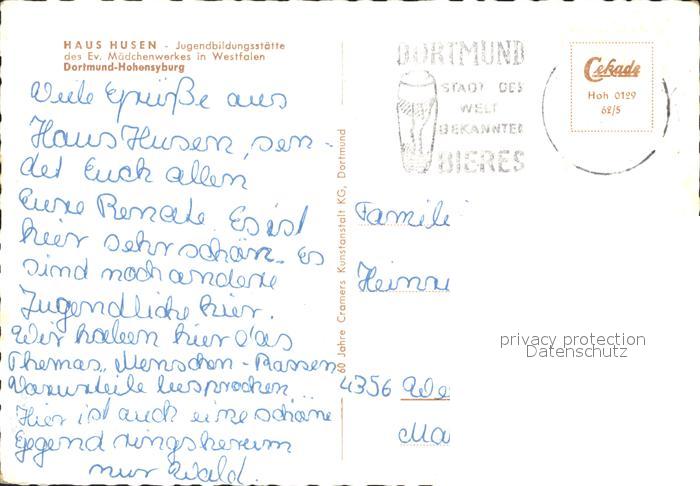 HAUS HUSEN - Jugendbildungsstätte
des Ev. Mädchenwerkes in Westfalen
Dortmund-Hohensyburg
Viele Grüße aus
Haus Husen, sen-
det Euch allen
Eure Renate. Es ist
hier sehr schön. Es
sind noch andere
Jugendliche hier.
Wir haben hier das
Thema "Menschen - Rassen
Vorurteile besprochen.
Hier ist auch eine schöne
Gegend ringsherum
nur Wald.
60 Jahre Cramers Kunstanstalt KG, Dortmund
DORTMUND
STADT DES
WELT
BEKANNTEN
BIERES
Cekade
Hoh 0129
62/5
Famili
Heinri
4356 We
Ma
privacy protection
Datenschutz